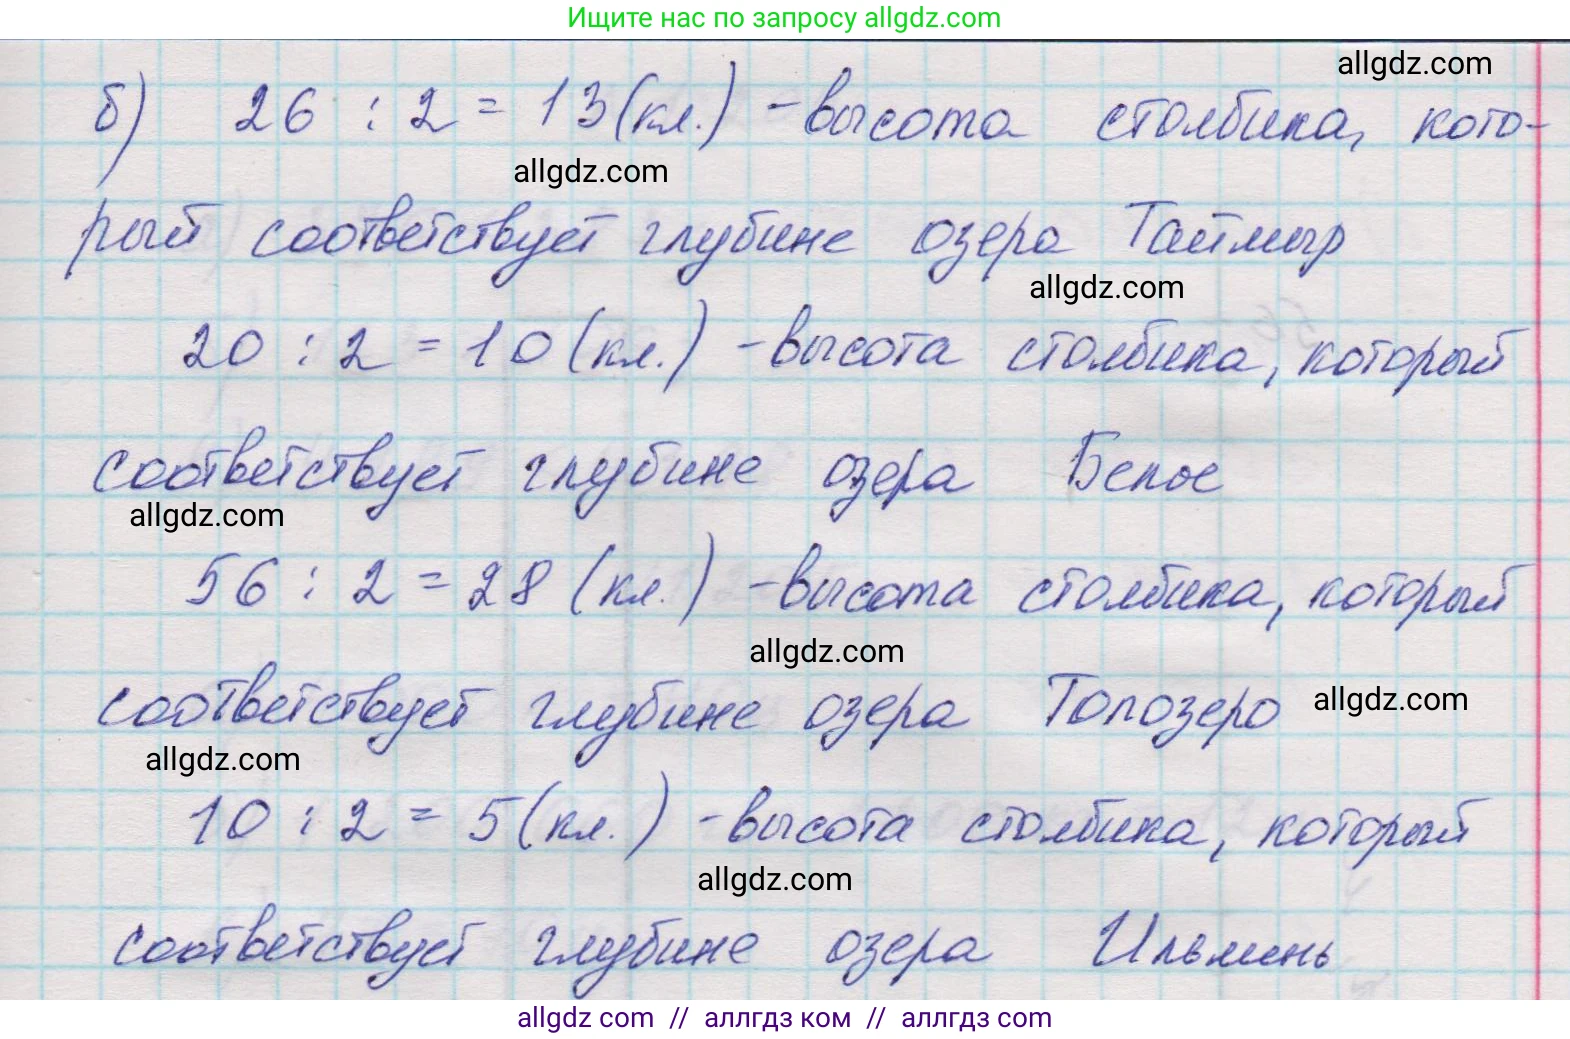 Ищите нас по запросу allgdz.com
allgdz.com
б) 26 : 2 = 13 (кл.) - высота столбика, кото-
allgdz.com
рый соответствует глубине озера Таймыр
allgdz.com
20 : 2 = 10 (кл.) - высота столбика, который
соответствует глубине озера Белое
allgdz.com
56 : 2 = 28 (кл.) - высота столбика, который
allgdz.com
соответствует глубине озера Топозеро allgdz.com
allgdz.com
10 : 2 = 5 (кл.) - высота столбика, который
allgdz.com
соответствует глубине озера Ильмень
allgdz com // аллгдз ком // аллгдз com